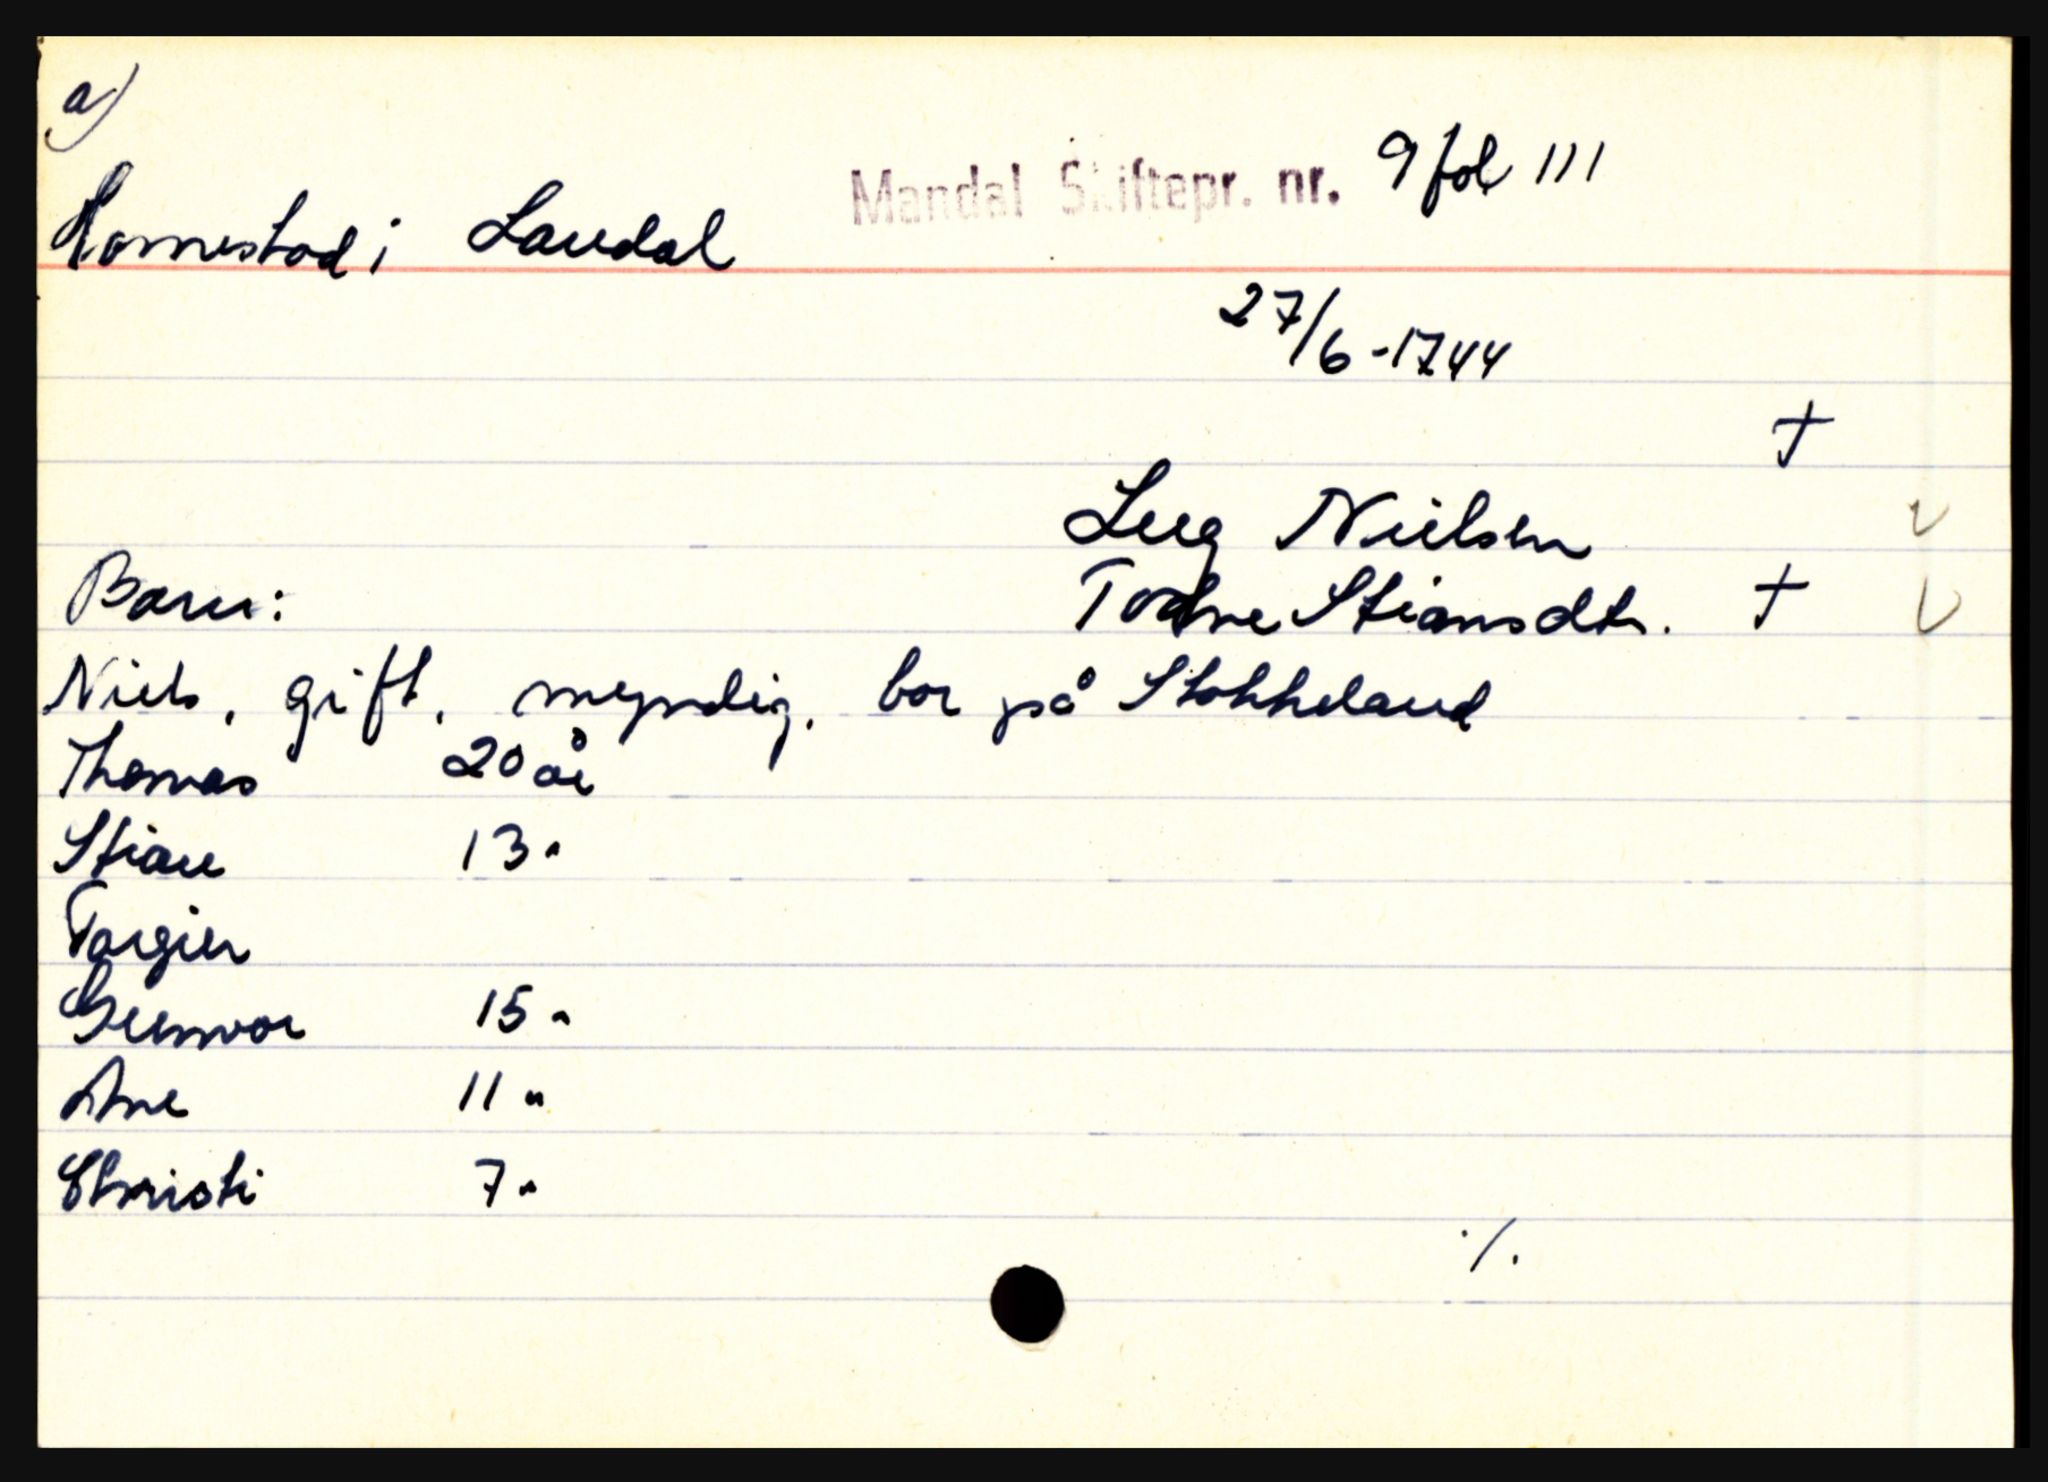 a)
Mandal Skiftepr. nr. 9 fol 111
Homestad i Laudal
27/6-1744
†
Lueg Nielsen
Barn:
Todne Stiansdtr. †
Niels, gift, myndig, bor på Stokkeland
Thomas 20 år
Stian 13 "
Torgier
Gunvor 15 "
Ane 11 "
Christi 7 "
./.